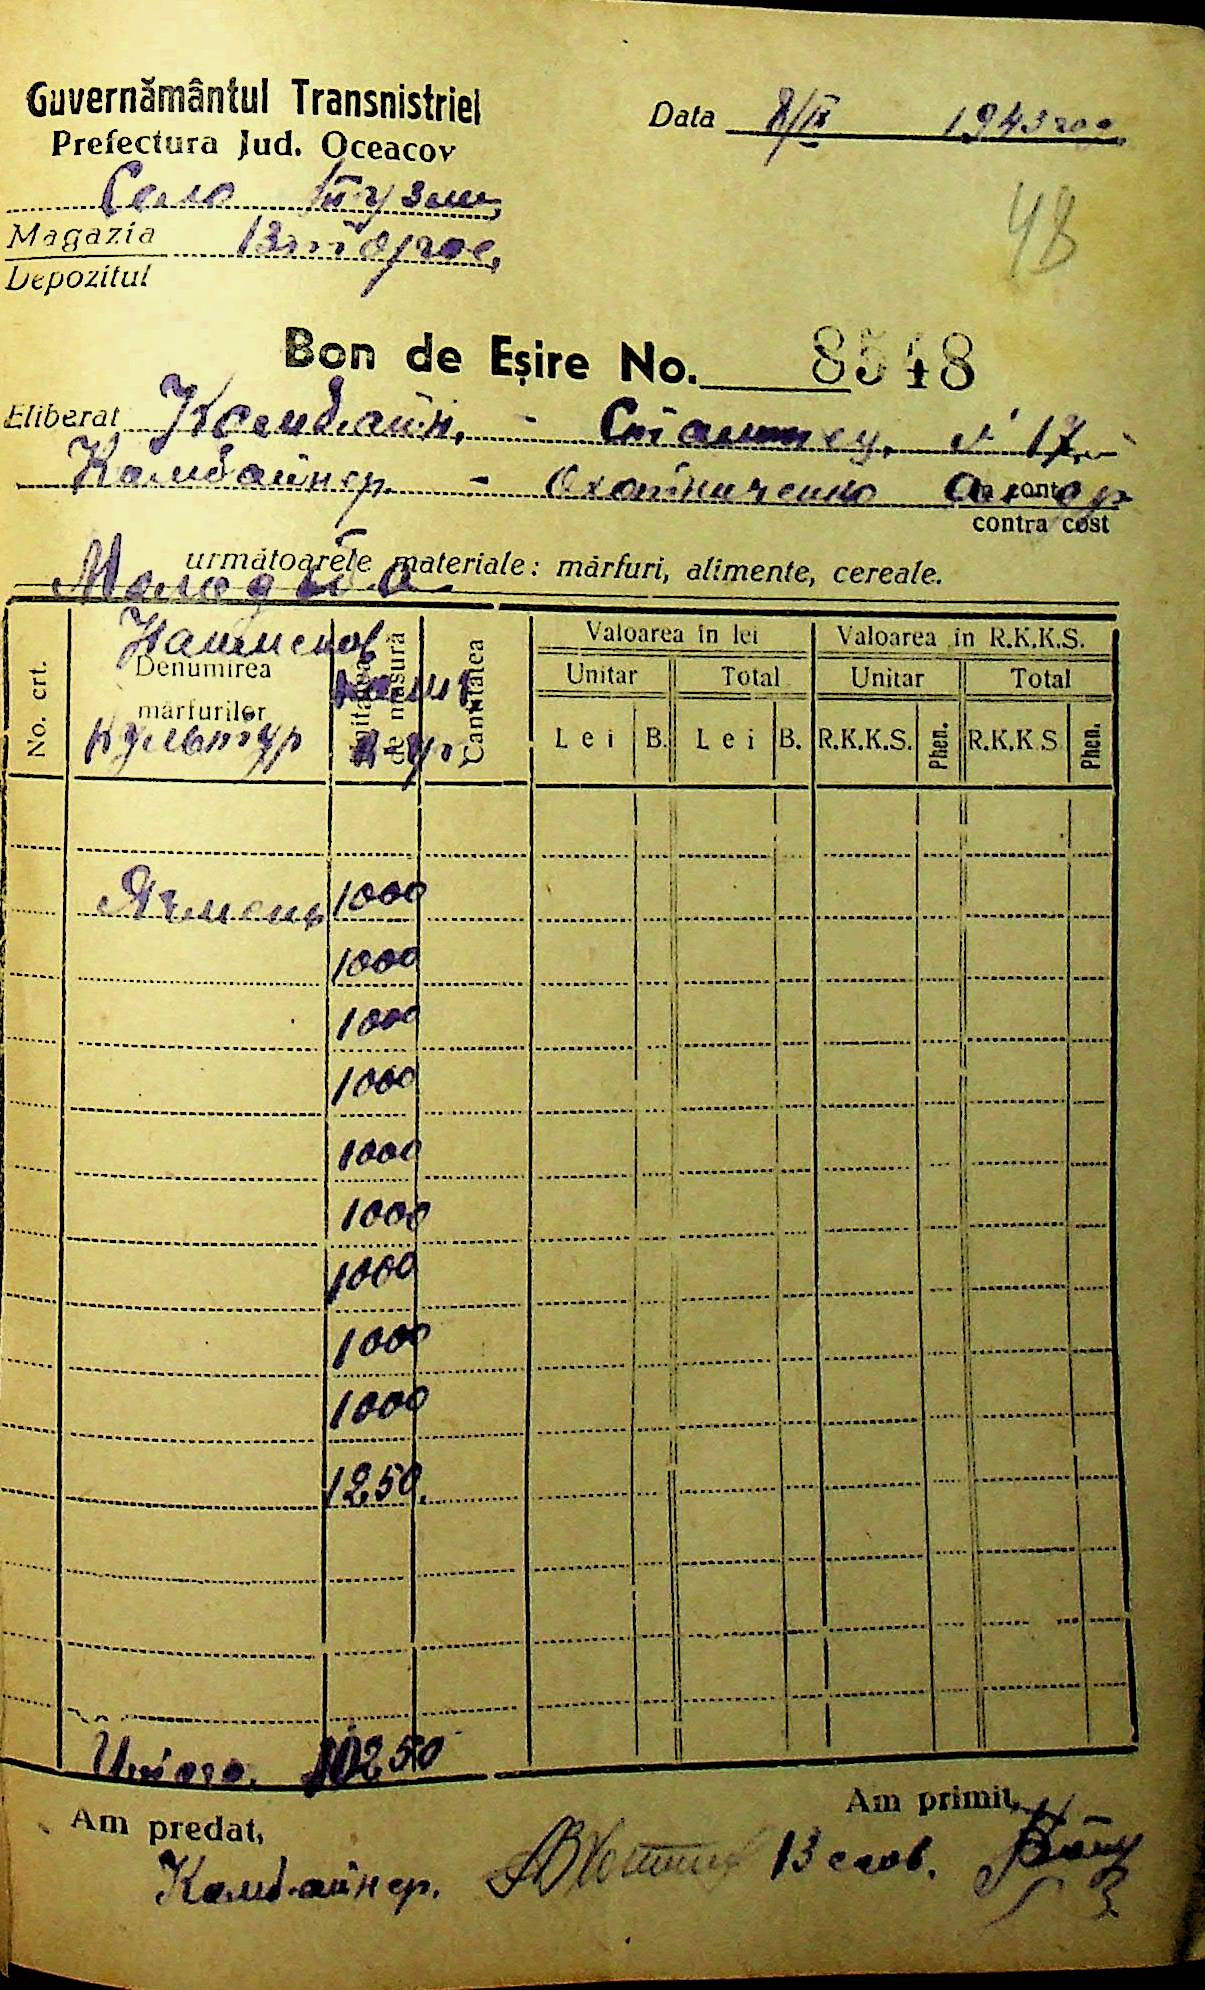 Guvernământul Transnistriei
Prefectura Jud. Oceacov
Data 8/IX 1943 год.
Село Тузлы
48
Magazia Взторгос.
Depozitul
Bon de Eșire No. 8548
Eliberat Комбайн, - Сталинец, № 17,
Комбайнер. - Охотниченко
in cont
contra cost
următoarele materiale: mărfuri, alimente, cereale.
Молодьба
No. crt.
Наименов
Denumirea
mărfurilor
культур
Unitatea
de măsură
колич
Cantitatea
Valoarea în lei
Valoarea in R.K.K.S.
Unitar Total Unitar Total
Lei B. Lei B. R.K.K.S. Phen. R.K.K.S Phen.
Ячмень 1000
1000
1000
1000
1000
1000
1000
1000
1000
1250.
Итого. 10250
Am predat, Am primit,
Комбайнер. Весов.